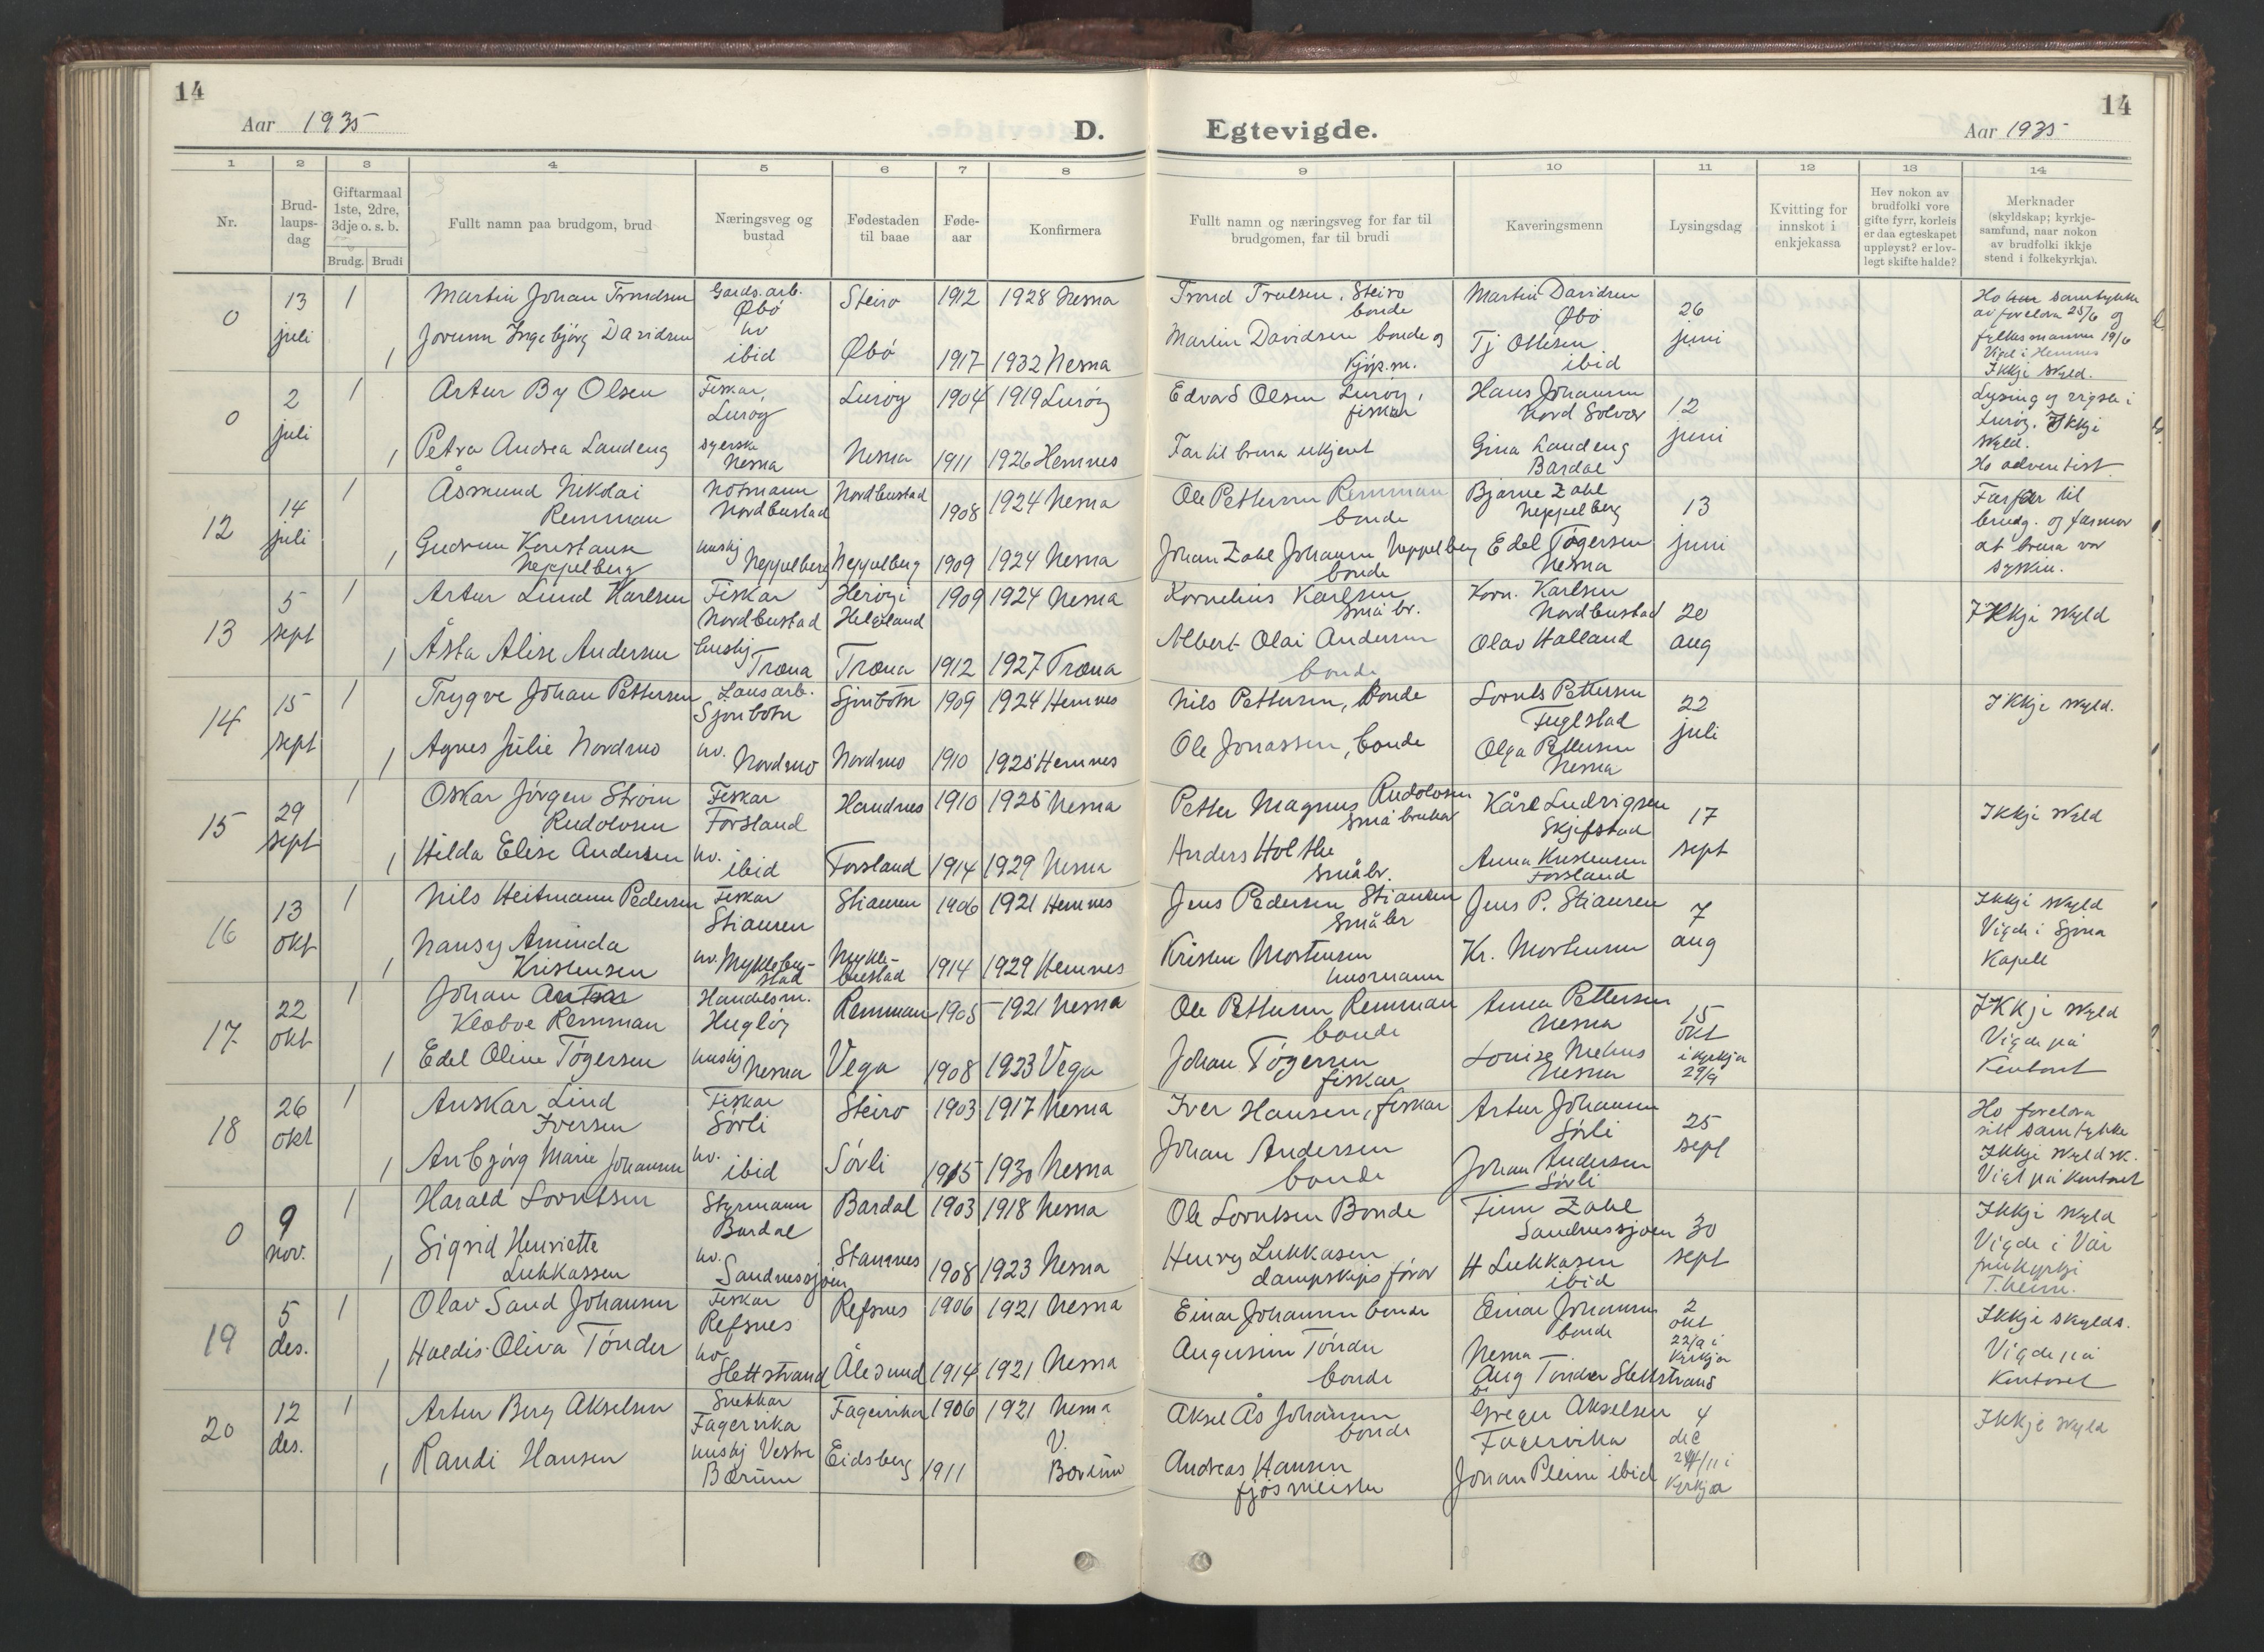 14
Aar 1935
D.
Egtevigde.
Aar 1935
14
1 2 3 4 5 6 7 8 9 10 11 12 13 14
Nr.
Brud-
laups-
dag
Giftarmaal
1ste, 2dre,
3dje o. s. b.
Brudg. Brudi
Fullt namn paa brudgom, brud
Næringsveg og
bustad
Fødestaden
til baae
Føde-
aar
Konfirmera
Fullt namn og næringsveg for far til
brudgomen, far til brudi
Kaveringsmenn
Lysingsdag
Kvitting for
innskot i
enkjekassa
Hev nokon av
brudfolki vore
gifte fyrr, korleis
er daa egteskapet
uppløyst? er lov-
legt skifte halde?
Merknader
(skyldskap; kyrkje-
samfund, naar nokon
av brudfolki ikkje
stend i folkekyrkja).
0
13
juli
1
Martin Johan Trondsen
Gards.arb.
Øbø
Steiro
1912
1928 Nesna
Trond Trulsen, Steiro
bonde
Martin Davidsen
Øbø
26
juni
Ho samtykke
av forelora 25/6 og
fylkesmannen 19/6
Vigd i Hemnes
Ikkji skyld.
1
Jorunn Ingebjørg Davidsen
hv
ibid
Øbø
1917
1932 Nesna
Martin Davidsen bonde og
kjøp.m.
Tj Ottesen
ibid
0
2
juli
1
Artur By Olsen
Fiskar,
Lurøy
Lurøy
1904
1919 Lurøy
Edvard Olsen Lurøy,
fiskar
Hans Johansen
Nord Solvær
12
juni
Lysing og vigsla i
Lurøy. Ikkji
skyld.
Ho adventist
1
Petra Andrea Landeng
syerska
Nesna
Nesna
1911
1926 Hemnes
Far til bruna ukjent
Gina Landeng
Bardal
12
14
juli
1
Åsmund Nikolai
Remman
Notmann
Nordbustad
Nordbustad
1908
1924 Nesna
Ole Pettersen Remman
bonde
Bjarne Zahl
Neppelberg
13
juni
Farfar til
brudg. og farmor
at bruna var
syskin.
1
Gudrun Konstanse
Neppelberg
hushj
Neppelberg
Neppelberg
1909
1924 Nesna
Johan Zahl Johansen Neppelberg
bonde
Edel Tøgersen
Nesna
13
5
sept
1
Artur Lind Karlsen
Fiskar
Nordbustad
Herøy i
Helgeland
1909
1924 Nesna
Kornelius Karlsen
småbr.
Korn. Karlsen
Nordbustad
20
aug
Ikkji skyld
1
Åsta Alise Andersen
hushj
Træna
Træna
1912
1927 Træna
Albert Olai Andersen
bonde
Olav Halland
14
15
sept
1
Trygve Johan Pettersen
Lausarb.
Sjonbotn
Sjonbotn
1909
1924 Hemnes
Nils Pettersen, bonde
Lornts Pettersen
Fuglstad
22
juli
Ikkji skyld.
1
Agnes Julie Nordmo
hv.
Nordmo
Nordmo
1910
1925 Hemnes
Ole Jonassen, bonde
Olga Pettersen
Nesna
15
29
sept
1
Oskar Jørgen Strøm
Rudolvsen
Fiskar
Forsland
Handnes
1910
1925 Nesna
Petter Magnus Rudolvsen
småbrukar
Kåre Ludvigsen
Skjefstad
17
sept
Ikkji skyld
1
Hilda Elise Andersen
hv.
ibid
Forsland
1914
1929 Nesna
Anders Holthe
småbr.
Anna Kristensen
Forsland
16
13
okt
1
Nils Heitmann Pedersen
Fiskar
Stiauren
Stiauren
1906
1921 Hemnes
Jens Pedersen Stiauren
småbr
Jens P. Stiauren
7
aug
Ikkji skyld
Vigde i Sjona
Kapell
1
Nansy Aminda
Kristensen
hv. Myklebu-
stad
Mykle-
bustad
1914
1929 Hemnes
Kristen Mortensen
husmann
Kr. Mortensen
17
22
okt
1
Johan Anton
Klobve Remman
Handelsm.
Hugløy
Remman
1905
1921 Nesna
Ole Pettersen Remman
bonde
Anna Pettersen
Nesna
15
okt
i kyrkja
29/9
Ikkji skyld
Vigde på
Kontoret
1
Edel Oline Tøgersen
hushj
Nesna
Vega
1908
1923 Vega
Johan Tøgersen
fiskar
Louise Mehus
Nesna
18
26
okt
1
Anskar Lind
Iversen
Fiskar
Sørli
Steiro
1903
1917 Nesna
Iver Hansen, fiskar
Artur Johansen
Sørli
25
sept
Ho forelora
sitt samtykke
Ikkji skyldsk.
Vigt på kontoret
1
Anbjørg Marie Johansen
hv.
ibid
Sørli
1915
1930 Nesna
Johan Andersen
bonde
Johan Andersen
Sørli
0
9
nov.
1
Harald Lorntsen
Styrmann
Bardal
Bardal
1903
1918 Nesna
Ole Lorntsen Bonde
Finn Zahl
Sandnessjøen
30
sept
Ikkji skyld
Vigde i Vår
frukyrkji
T.heim.
1
Sigrid Henriette
Lukkassen
hv.
Sandnessjøen
Stamnes
1908
1923 Nesna
Henry Lukkasen
dampskips fører
H Lukkasen
ibid
19
5
des.
1
Olav Sand Johansen
Fiskar
Refsnes
Refsnes
1906
1921 Nesna
Einar Johansen bonde
Einar Johansen
bonde
Nesna
2
okt
22/9 i
kyrkja
Ikkji skylds.
Vigde på
Kontoret
1
Haldis Oliva Tønder
hv
Slettstrand
Ålesund
1914
1921 Nesna
Augusinn Tønder
bonde
Aug Tønder Slettstrand
20
12
des.
1
Artur Berg Akselsen
Snekkar
Fagervika
Fagervika
1906
1921 Nesna
Aksel Ås Johansen
bonde
Greger Akselsen
Fagervika
4
dec
24/11 i
kyrkja
Ikkje skyld
1
Randi Hansen
hushj Vestre
Bærum
Eidsberg
1911
V.
Bærum
Andreas Hansen
fjøsmeister
Johan Pleim ibid